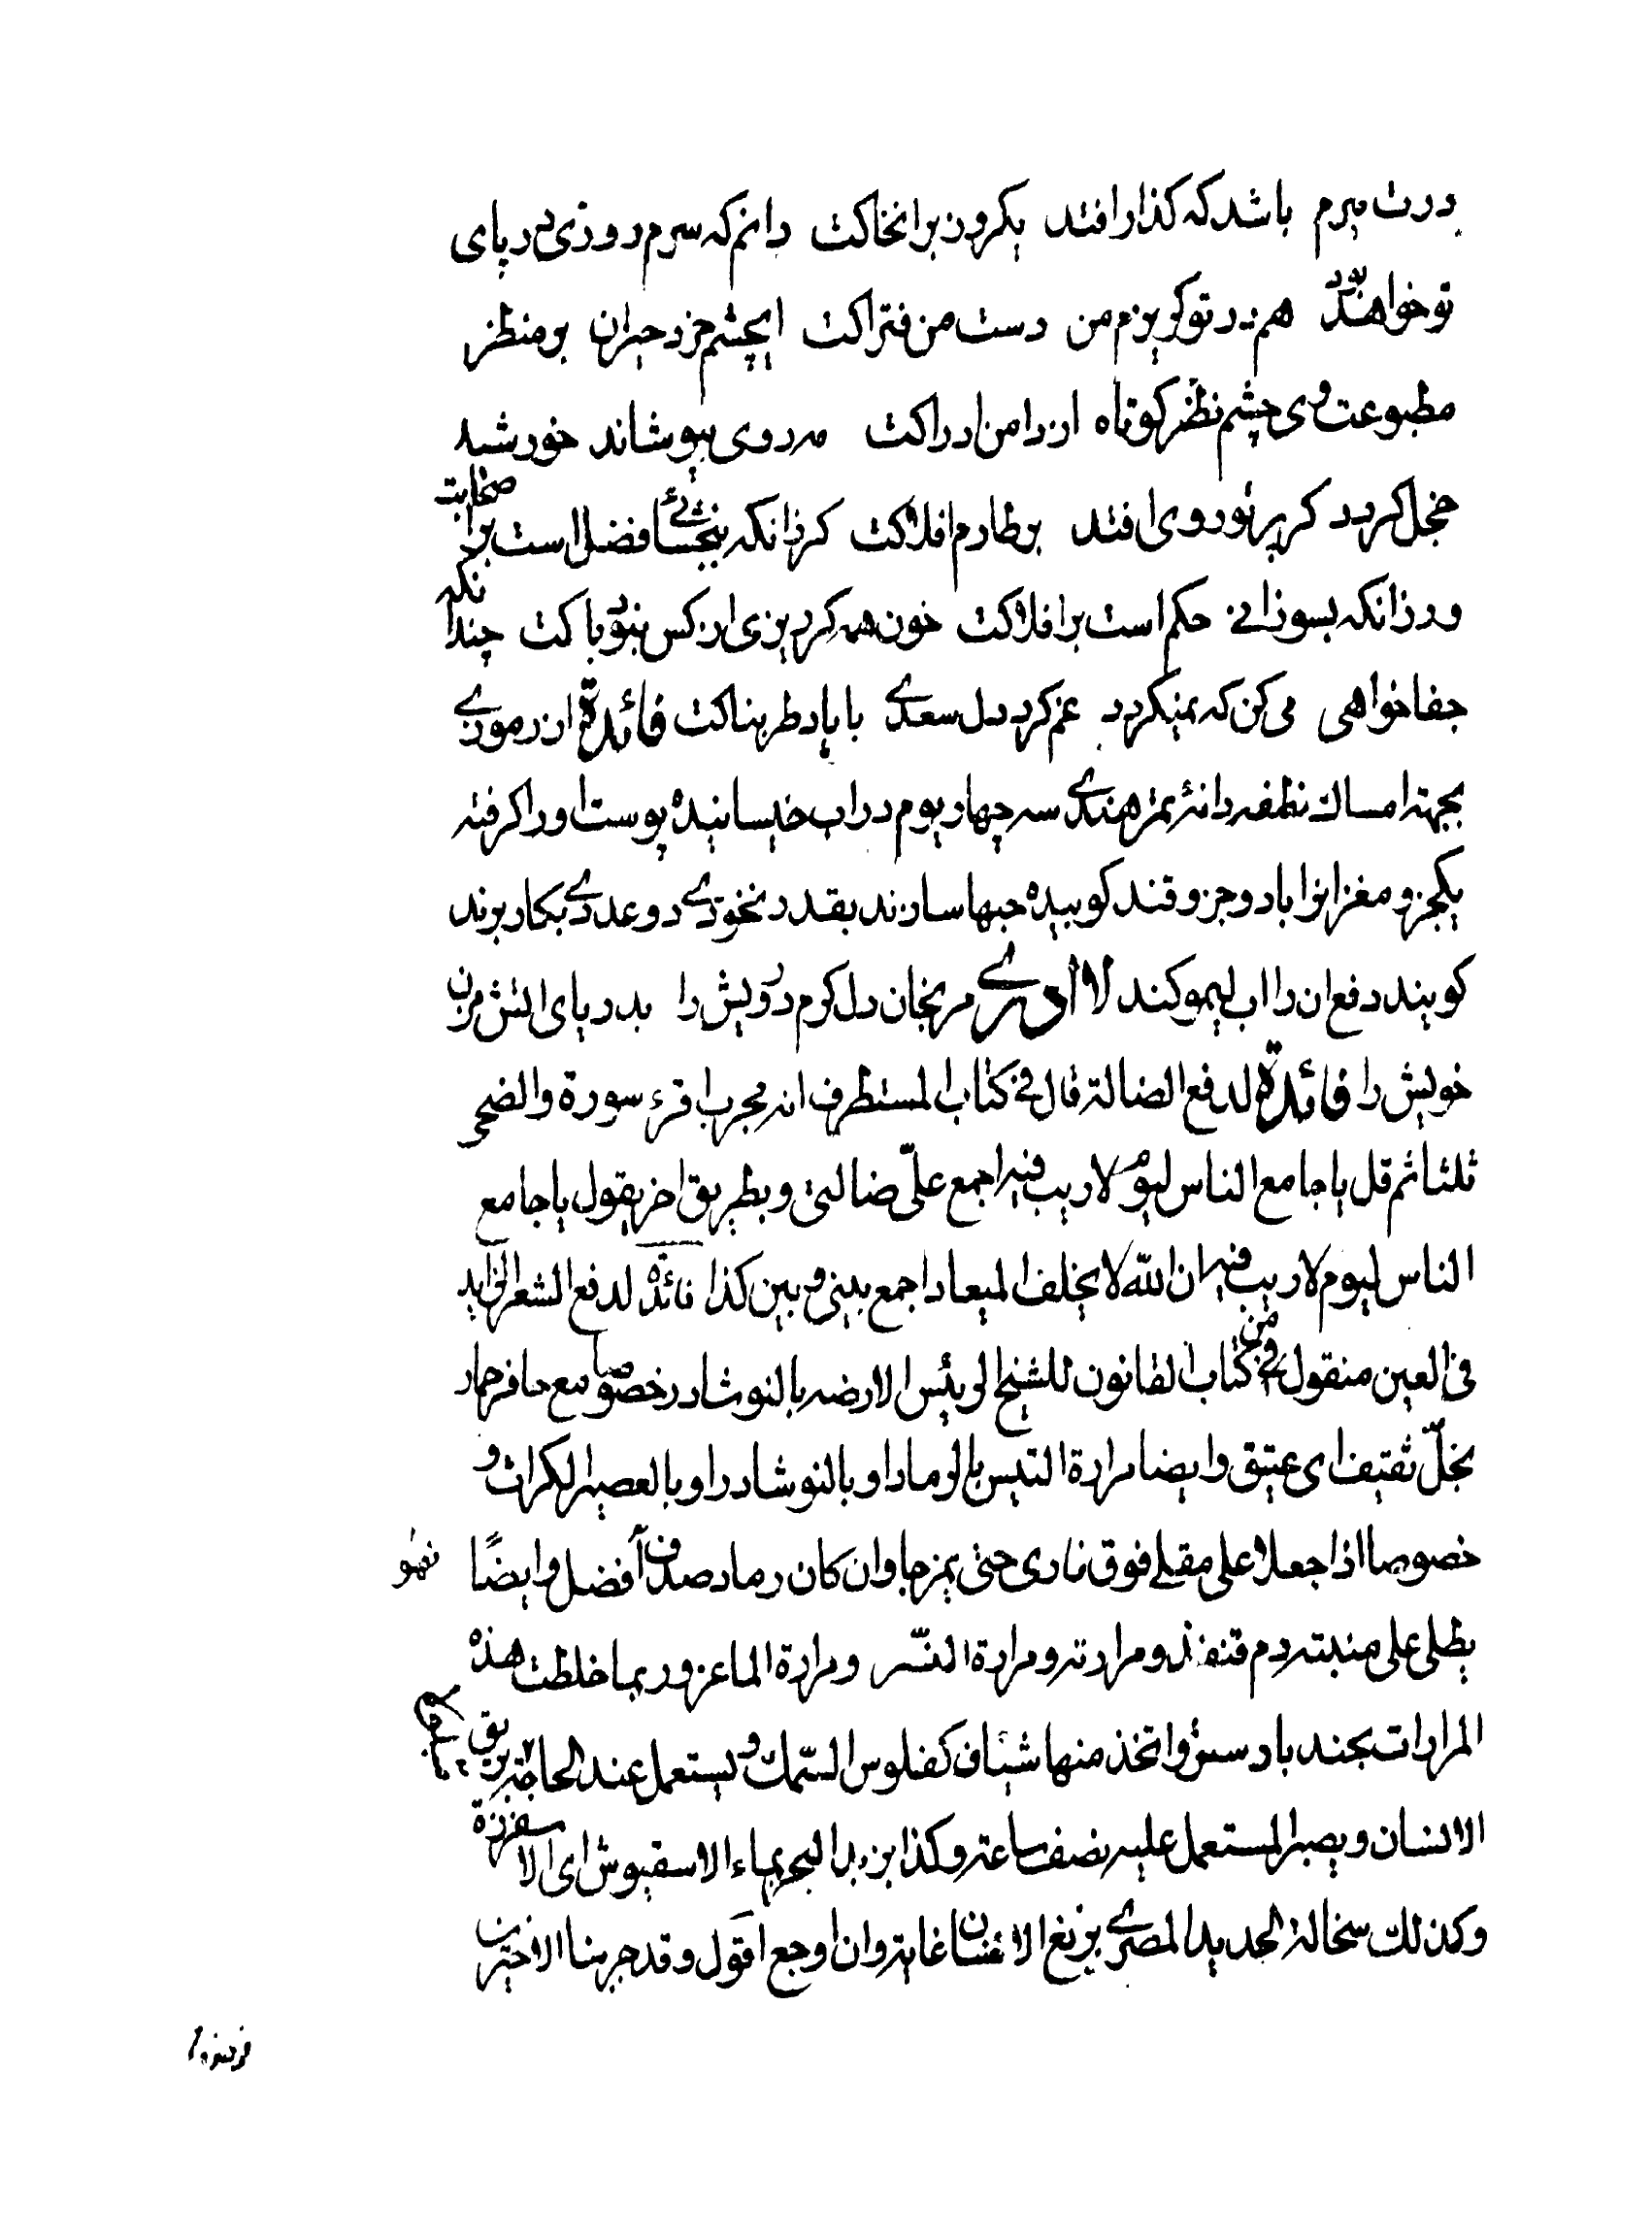 درت میرم باشد که گذار افتد یکروز بران خاکت دانم که سرم روزی در پای
تو خواهد شد هم در تو گریزم من دست من فتراکت ایچشم خرد حیران بر منظر
مطبوعت وی چشم نظر کوتاه از دامن ادراکت مه روی بپوشاند خورشید
خجل گردد گر پرتو روی افتد بر طارم افلاکت گر زانکه ببخشائی فضل است بر اصحابت
ور زانکه بسوزانی حکم است بر افلاکت خون همه گر ریزی از کس نبود باکت چندانکه
جفا خواهی می کن که نمیگردد غم گرد دل سعدی با یاد طربناکت فائدة از رموزی
بجهته امساك نطفه دانۀ تمر هندی سه چهار یوم در اب خیسانیده پوست اورا گرفته
یکجزو مغز انرا با دو جزو قند کوبیده حبها سازند بقدر نخودی دو عددی بکار برند
گویند دفع ان را اب لیمو کند لا ادری مرنجان دل گرم درویش را بدریای اتش مزن
خویش را فائدة لدفع الضالة قال فی کتاب المستطرف انه مجرب اقرء سورة والضحی
ثلثا ثم قل یا جامع الناس لیوم لا ریب فیه اجمع علیّ ضالتی وبطریق اخر یقول یا جامع
الناس لیوم لا ریب فیه ان الله لا یخلف المیعاد اجمع بینی وبین کذا فائدة لدفع الشعر الزاید
فی العین منقول من کتاب القانون للشیخ الرئیس الارضه بالنوشادر خصوصا مع حافر حمار
بخلّ ثقیف ای عتیق وایضا مرارة التیس بالرماد او بالنوشادر او بالعصیر الکراث و
خصوصا اذا جعلا علی مقلی فوق نار حتی یمزجا وان کان رماد صدف أفضل وایضًا فهو
یطلی علی منبته دم قنفذ ومرارته ومرارة النسر ومرارة الماعز وربما خلطت هذه
المرارات بجندبادستر واتخذ منها شیاف کفلوس السمك ویستعمل عند الحاجة بریق
الانسان ویصبر المستعمل علیه نصف ساعة وکذا زبد البحر بماء الاسقیوش ای الاسفرزة
وکذلك سخالة الحدید المصری بریق الانسان غایة وان اوجع اقول وقد جربنا الاخیرین